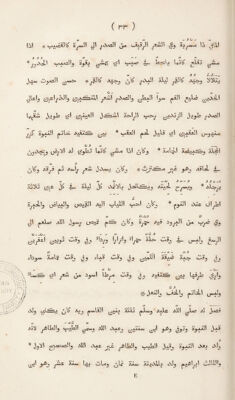 ( ٣٣ )
الماني ذا مسربة وفي الشعر الرقيق من الصدر الى السرة كالقضيب * اذا
مشى تقلع كأنما ينحط في صبب اي يمشي بقوة والصبب الحدور *
يتلألأ وجهه كالقمر ليلة البدر كأن وجهه كالقمر * حسن الصوت سهل
الخدين ضليع الفم سوآ البطن والصدر اشعر المنكبين والذراعين واعالي
الصدر طويل الزندين رحب الراحة اشكل العينين اي طويل شقهما
منهوس العقبين اي قليل لحم العقب * بين كتفيه خاتم النبوة كزر
الحجلة وكبيضة الحمامة * وكان اذا مشى كأنما تطوى له الارض ويجدون
في لحاقه وهو غير مكترث * وكان يسدل شعر رأسه ثم فرقه وكان
يرجله * ويسرح لحيته ويكتحل بالاثمد كل ليلة في كل عين ثلاثة
اطراف عند النوم * وكان احب الثياب اليه القميص والبياض والحبرة
وفي ضرب من البرود فيه حمرة وكان كم قميص رسول الله صلعم الى
الرسغ ولبس في وقت حلة حمراء وازارا وردآ وفي وقت ثوبين اخضرين
وفي وقت جبة ضيقة الكمين وفي وقت قباء وفي وقت عمامة سوداء
وارخى طرفها بين كتفيه وفي وقت مرطا اسود من شعر اي كساء
ولبس الخاتم والخف والنعل *
فصل له صلى الله عليه وسلم ثلاثة بنين القاسم وبه كان يكنى ولد
قبل النبوة وتوفي وهو ابن سنتين وعبد الله وسمي الطيب والطاهر لانه
ولد بعد النبوة وقيل الطيب والطاهر غير عبد الله والصحيح الاول *
والثالث ابراهيم ولد بالمدينة سنة ثمان ومات بها سنة عشر وهو ابن
E